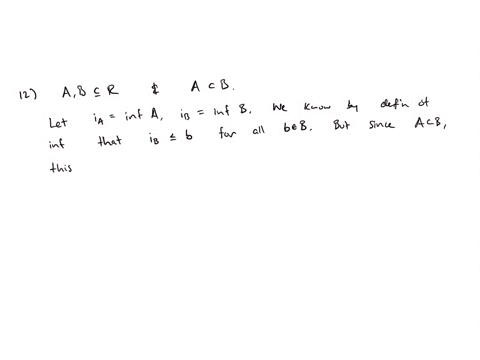 12) A, B ⊆ R & A ⊂ B.
Let i_A = inf A, i_B = inf B. We know by defin of
inf that i_B ≤ b for all b∈B. But since A⊂B,
this